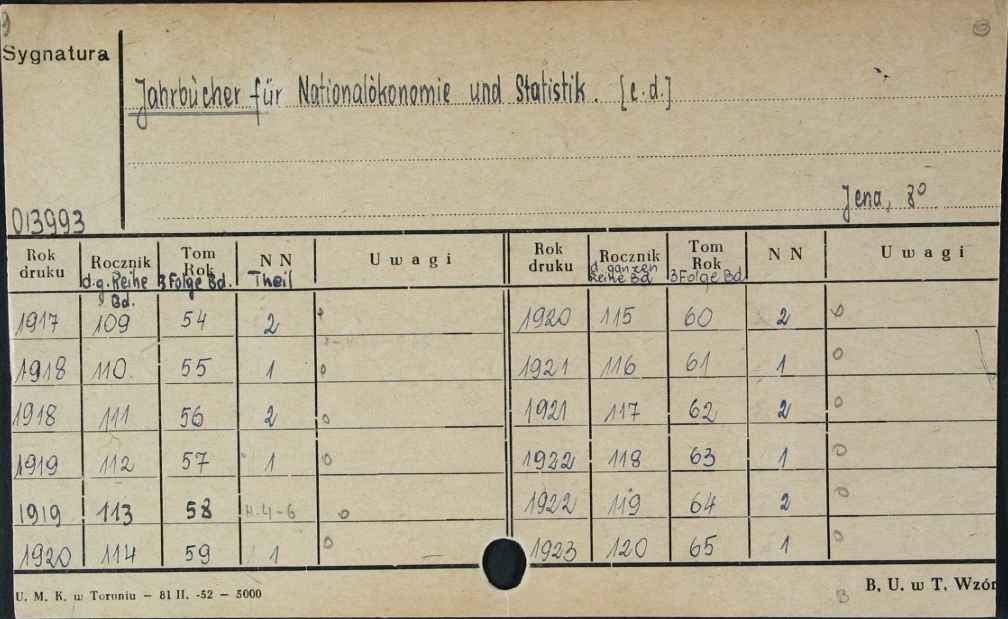 9
Sygnatura
Jahrbücher für Nationalökonomie und Statistik. [c.d.]
Jena, 8º
013993
Rok druku Rocznik d.g. Reihe Bd. Tom Rok 3 Folge Bd. NN Theil Uwagi Rok druku Rocznik d. ganzen Reihe Bd Tom Rok 3 Folge Bd. NN Uwagi
1917 109 54 2 o 1920 115 60 2 o
1918 110 55 1 o 1921 116 61 1 o
1918 111 56 2 o 1921 117 62 2 o
1919 112 57 1 o 1922 118 63 1 o
1919 113 58 H. 4-6 o 1922 119 64 2 o
1920 114 59 1 o 1923 120 65 1 o
U. M. K. w Toruniu – 81 II. -52 – 5000
B. U. w T. Wzór
B